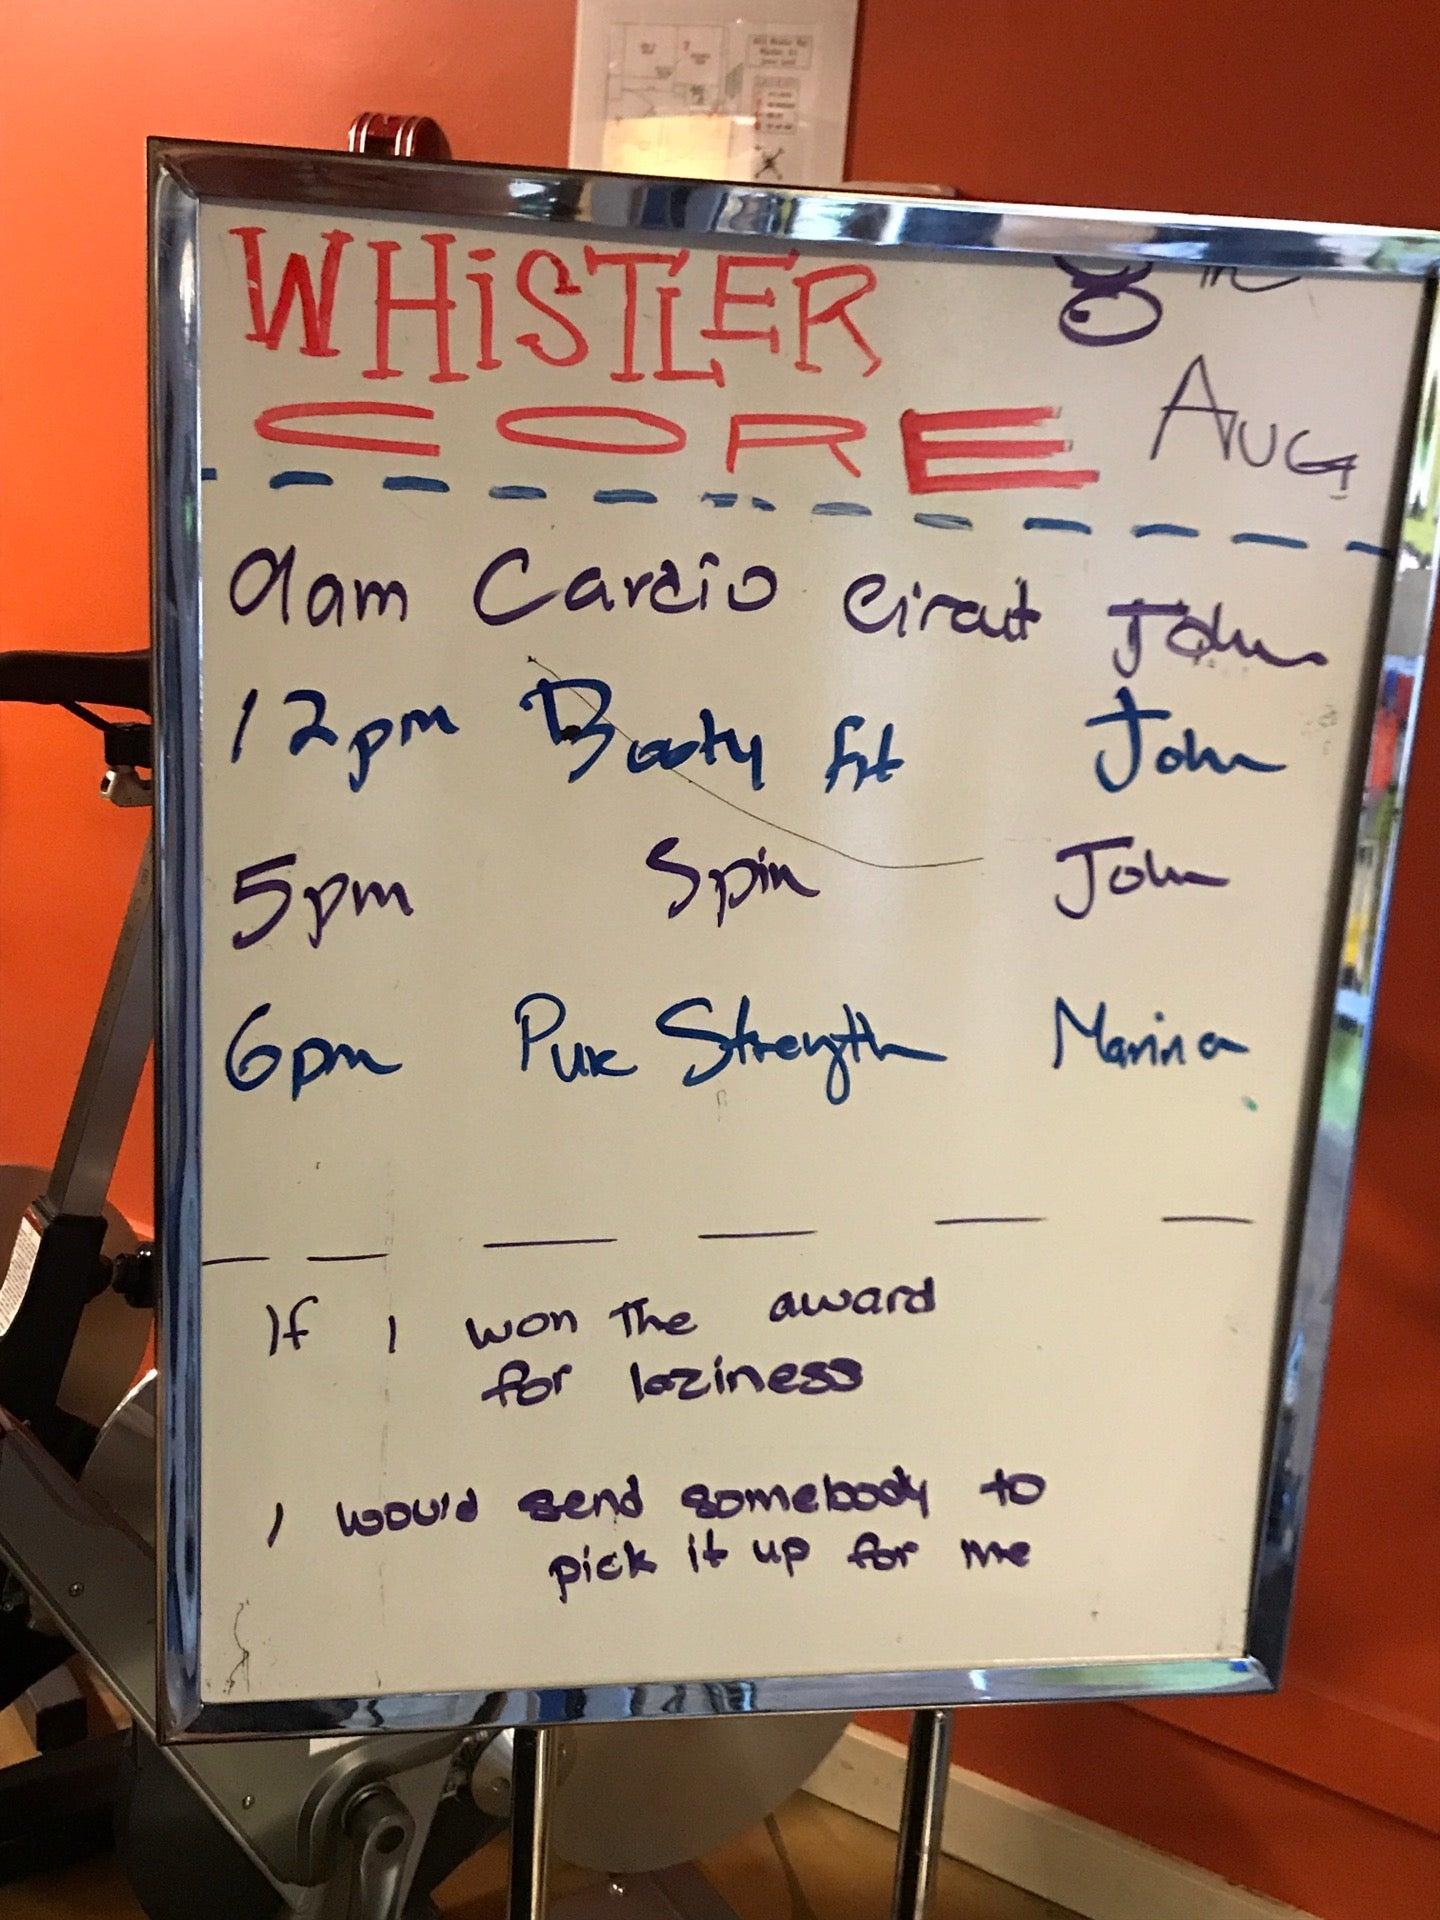 WHiSTLER
CORE
8
Aug
9am Cardio Circuit John
12pm Booty fit John
5pm Spin John
6pm Pure Strength Marina
If I won the award
for laziness
I would send somebody to
pick it up for me